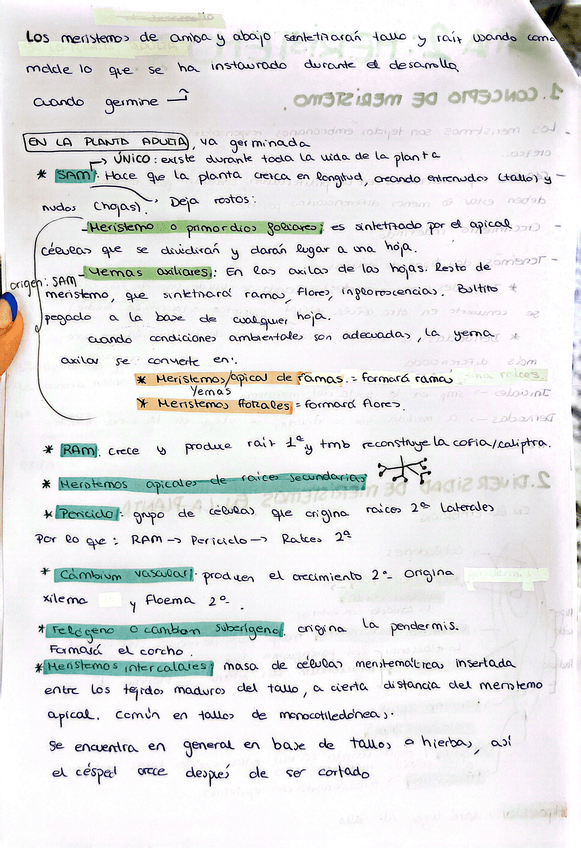 Los meristemos de arriba y abajo sintetizarán tallo y raíz usando como
molde lo que se ha instaurado durante el desarrollo
cuando germine
EN LA PLANTA ADULTA, ya germinada
ÚNICO: existe durante toda la vida de la planta
* SAM: Hace que la planta crezca en longitud, creando entrenudos (tallo) y
nudos (hojas). Deja restos:
- Meristemo o primordios foliares: es sintetizado por el apical
células que se dividirán y darán lugar a una hoja.
origen: SAM
- Yemas axiliares: En las axilas de las hojas. Resto de
meristemo, que sintetizará ramas, flores, inflorescencias. Bultito
pegado a la base de cualquier hoja.
cuando condiciones ambientales son adecuadas, la yema
axilar se convierte en:
* Meristemos/apical de ramas = formará ramas
Yemas
* Meristemos florales = formará flores.
* RAM: crece y produce raíz 1ª y tmb reconstruye la cofia/caliptra.
* Merotemos apicales de raíces secundarias
* Periciclo: grupo de células que origina raíces 2ª laterales
Por lo que: RAM → Periciclo → Raíces 2ª
* Cámbium vascular: producen el crecimiento 2º. Origina
xilema y floema 2º.
* Felógeno o cambion suberígeno: origina la peridermis.
Formará el corcho.
* Meristemos intercalares: masa de células meristemáticas insertada
entre los tejidos maduros del tallo, a cierta distancia del meristemo
apical. Común en tallos de monocotiledóneas.
Se encuentra en general en base de tallos o hierbas, así
el césped crece después de ser cortado
1. CONCEPTO DE MERISTEMO.
2. DIVERSIDAD DE MERISTEMOS EN LA PLANTA